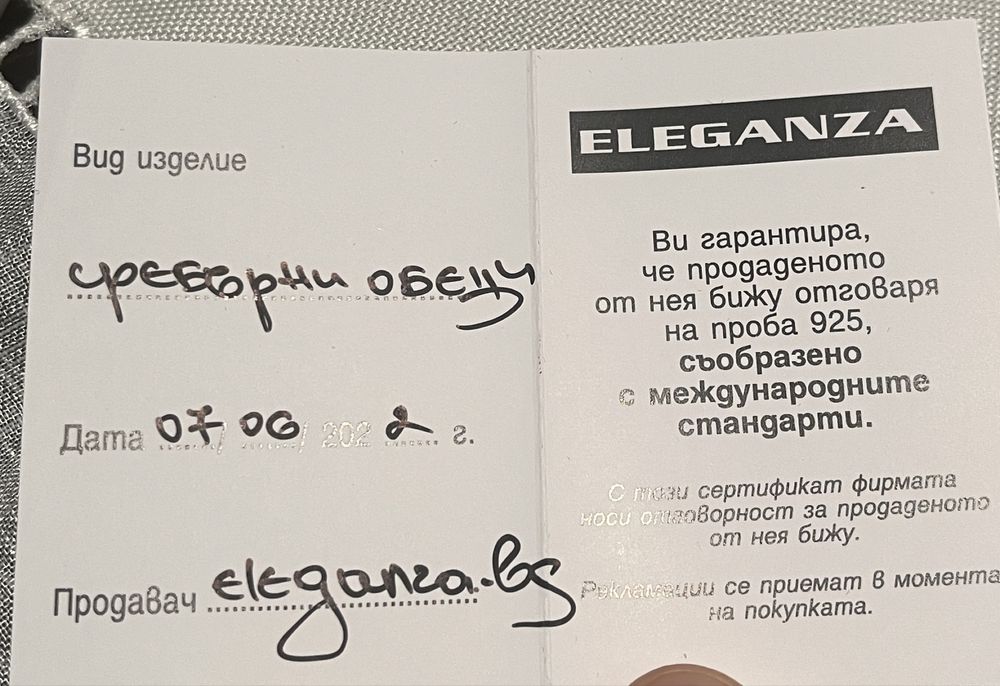 Вид изделие
сребърни обеци
Дата 07/06/2022 г.
Продавач eleganza.bg
ELEGANZA
Ви гарантира,
че продаденото
от нея бижу отговаря
на проба 925,
съобразено
с международните
стандарти.
С този сертификат фирмата
носи отговорност за продаденото
от нея бижу.
Рекламации се приемат в момента
на покупката.